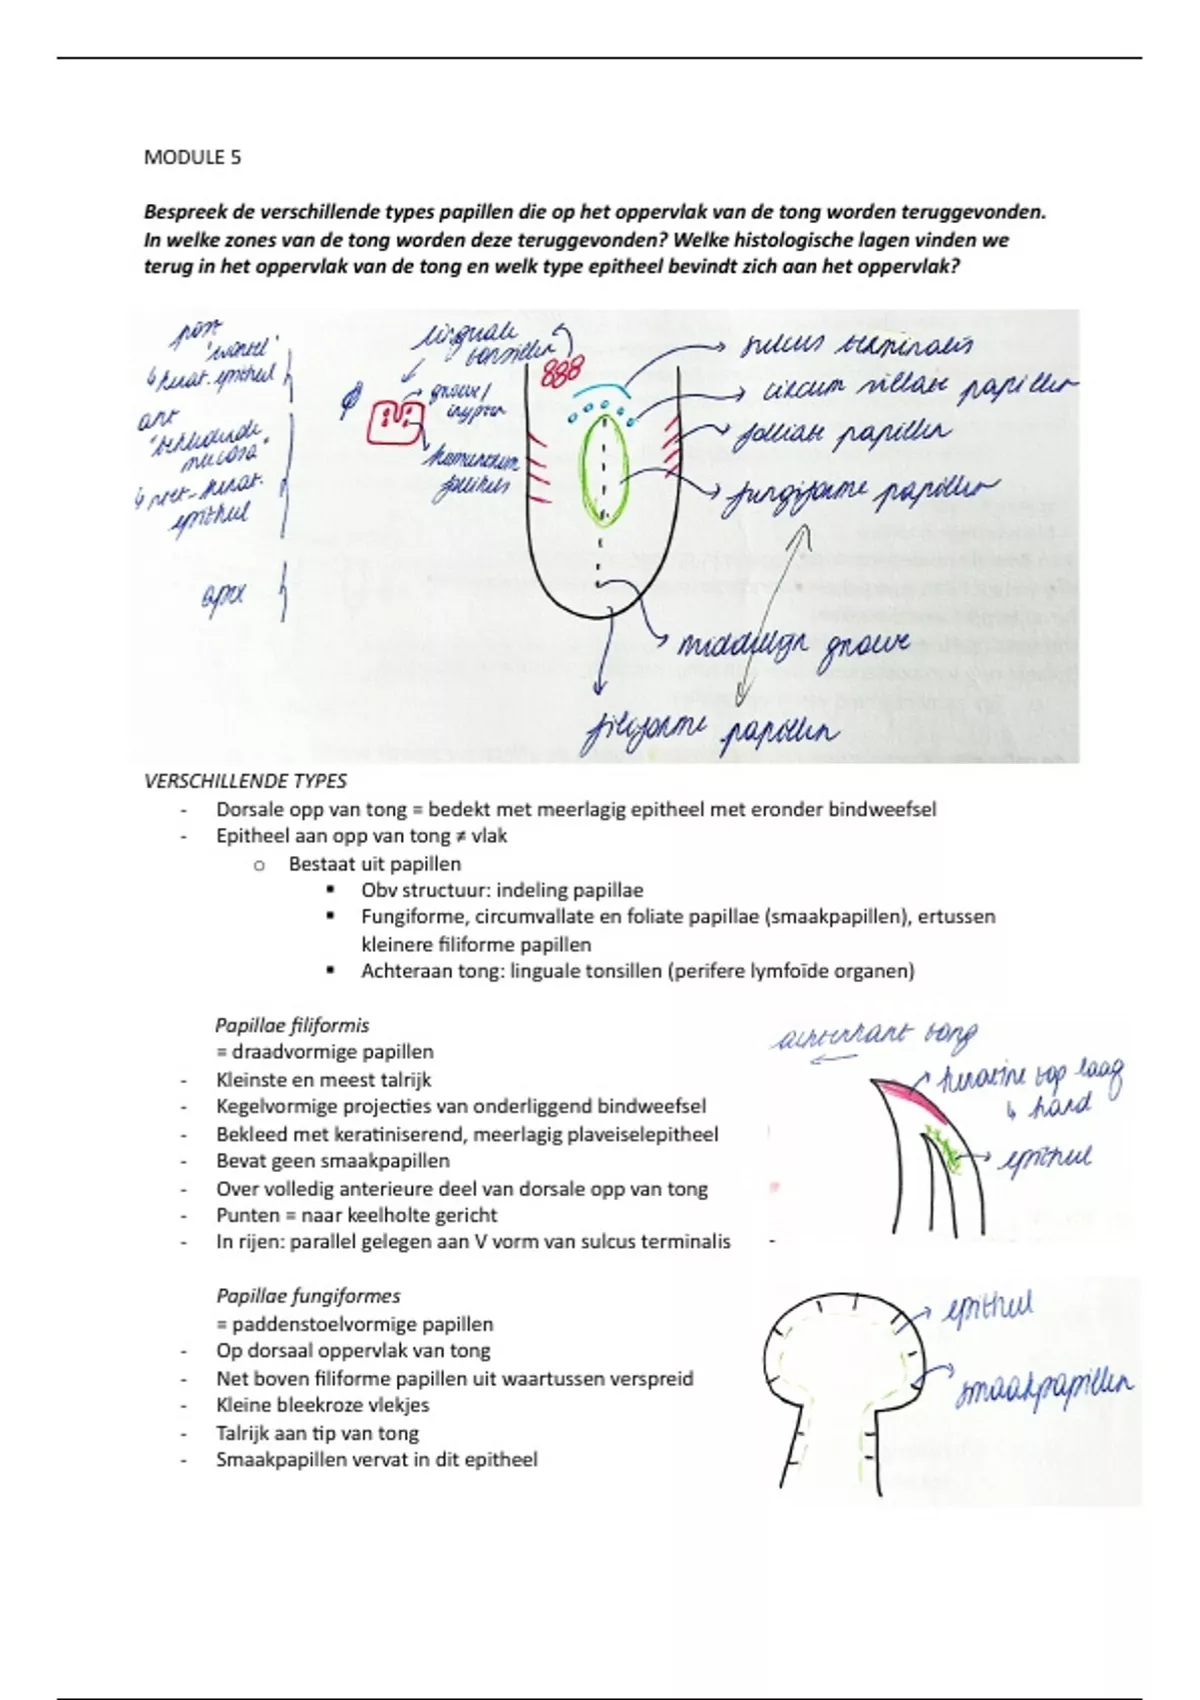 MODULE 5
Bespreek de verschillende types papillen die op het oppervlak van de tong worden teruggevonden.
In welke zones van de tong worden deze teruggevonden? Welke histologische lagen vinden we
terug in het oppervlak van de tong en welk type epitheel bevindt zich aan het oppervlak?
post
"wortel"
↳ kerat. epitheel
ant
"bekledende
mucosa"
↳ niet-kerat.
epitheel
apex
linguale
tonsillen
groeve/
crypten
follikels
sulcus terminalis
circum villate papillen
foliate papillen
fungiforme papillen
middellijn groeve
filiforme papillen
VERSCHILLENDE TYPES
- Dorsale opp van tong = bedekt met meerlagig epitheel met eronder bindweefsel
- Epitheel aan opp van tong ≠ vlak
o Bestaat uit papillen
▪ Obv structuur: indeling papillae
▪ Fungiforme, circumvallate en foliate papillae (smaakpapillen), ertussen
kleinere filiforme papillen
▪ Achteraan tong: linguale tonsillen (perifere lymfoïde organen)
Papillae filiformis
= draadvormige papillen
- Kleinste en meest talrijk
- Kegelvormige projecties van onderliggend bindweefsel
- Bekleed met keratiniserend, meerlagig plaveiselepitheel
- Bevat geen smaakpapillen
- Over volledig anterieure deel van dorsale opp van tong
- Punten = naar keelholte gericht
- In rijen: parallel gelegen aan V vorm van sulcus terminalis
achterkant tong
keratine top laag
↳ hard
epitheel
-
Papillae fungiformes
= paddenstoelvormige papillen
- Op dorsaal oppervlak van tong
- Net boven filiforme papillen uit waartussen verspreid
- Kleine bleekroze vlekjes
- Talrijk aan tip van tong
- Smaakpapillen vervat in dit epitheel
epitheel
smaakpapillen